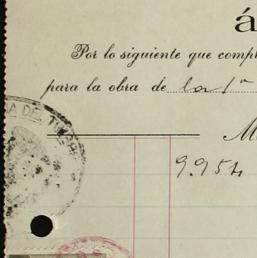 á
Por lo siguiente que compr
para la obra de la 1ª
M
9.954